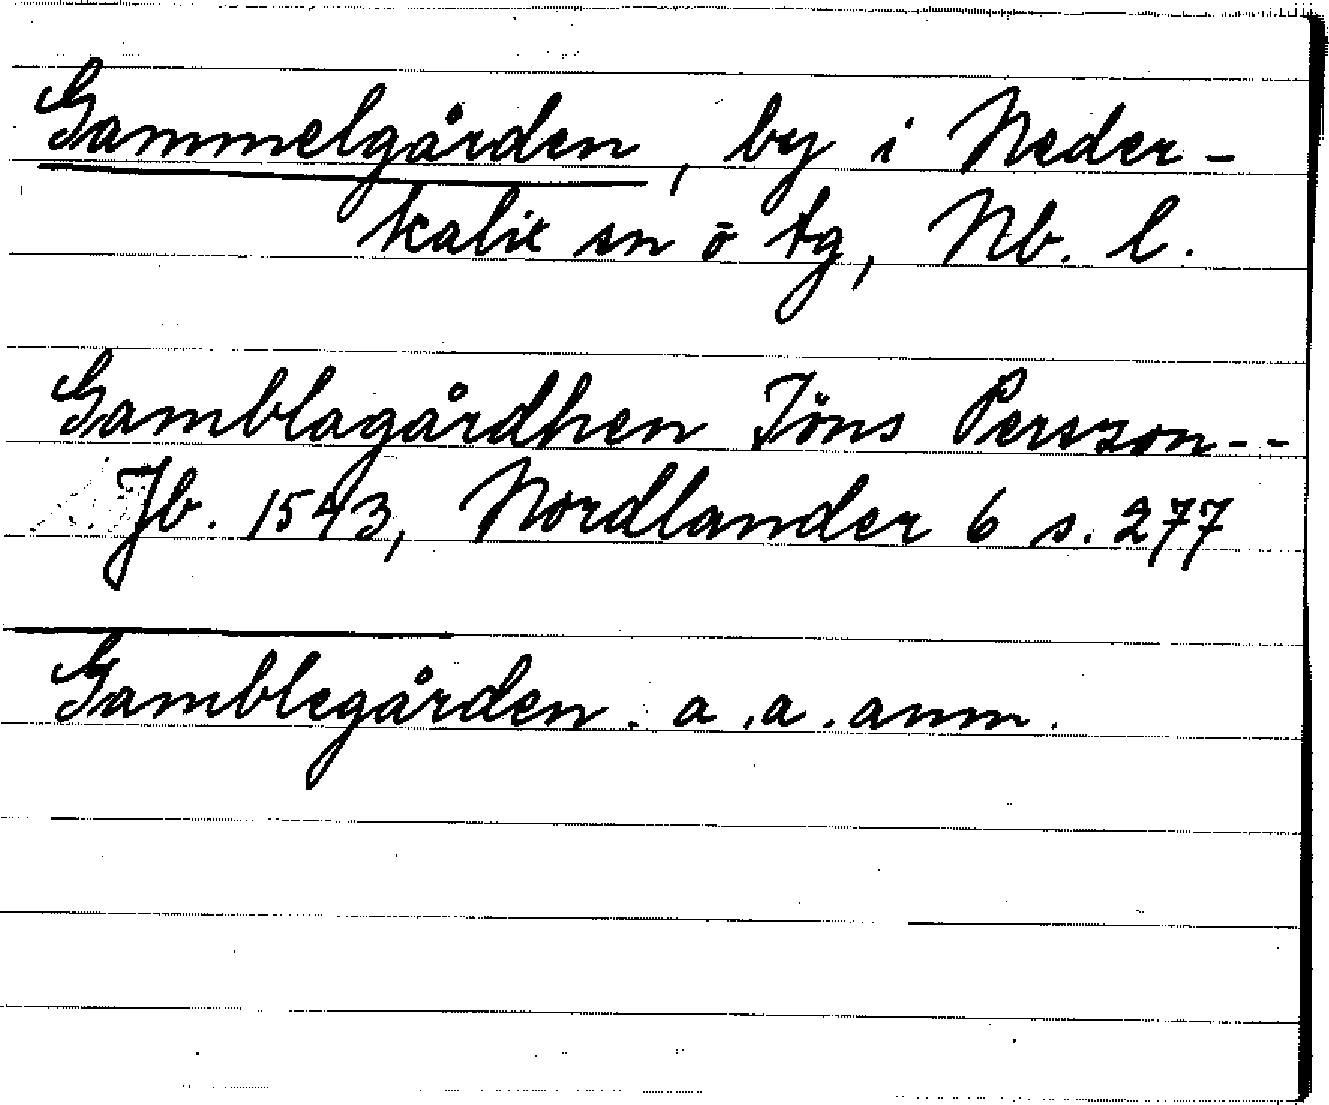 Gammelgården, by i Neder-
kalix sn ö tg, Nb. l.
Gamblagårdhen Jöns Persson--
Jb. 1543, Nordlander 6 s. 277
Gamblegården. a.a. anm.